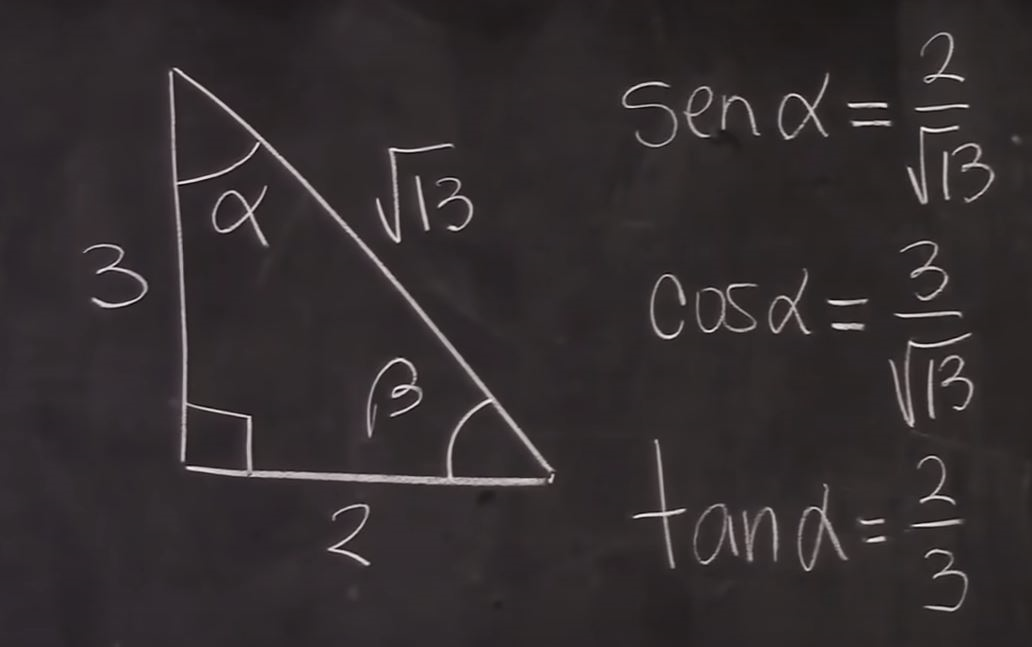 α
√13
3
β
2
sen α = 2/√13
cos α = 3/√13
tan α = 2/3